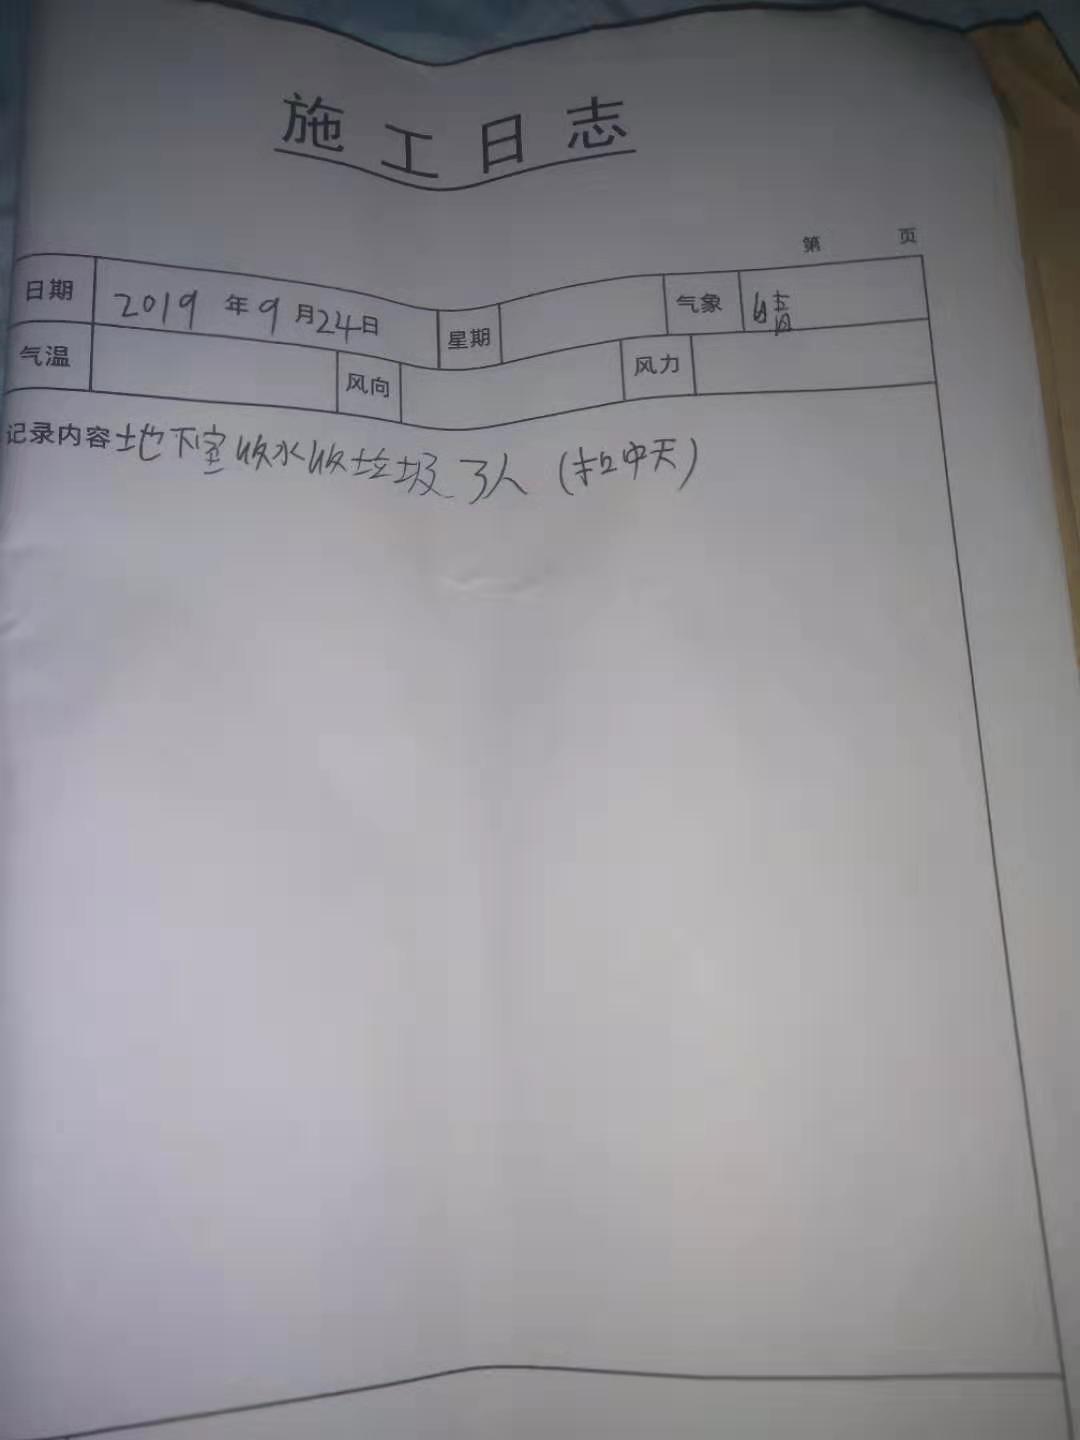 施工日志
第 页
日期 2019年9月24日 星期 气象 晴
气温 风向 风力
记录内容 地下室收水收垃圾3人(扣中天)